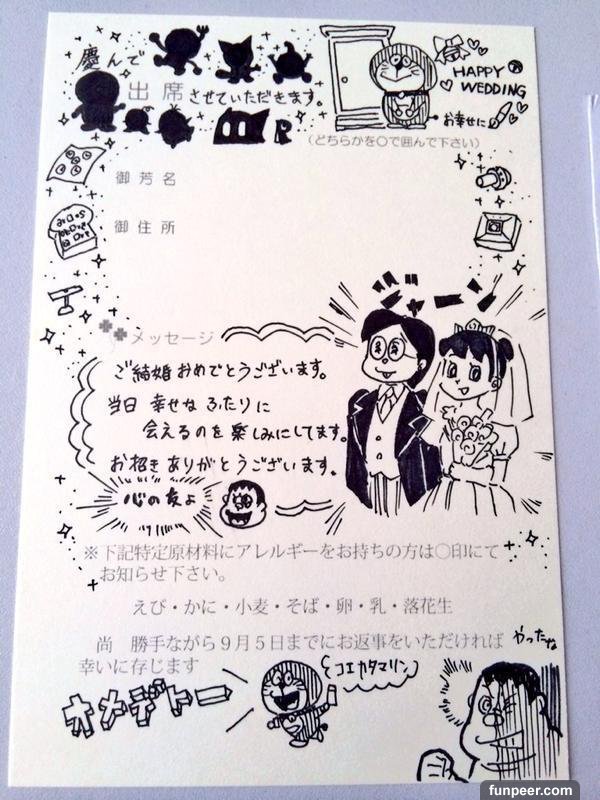 慶んで
出席させていただきます。
HAPPY
WEDDING
お幸せに
(どちらかを○で囲んで下さい)
御芳名
御住所
メッセージ
ジャーン
ご結婚おめでとうございます。
当日 幸せなふたりに
会えるのを楽しみにしてます。
お招きありがとうございます。
心の友よ
※下記特定原材料にアレルギーをお持ちの方は○印にて
お知らせ下さい。
えび・かに・小麦・そば・卵・乳・落花生
尚 勝手ながら9月5日までにお返事をいただければ
幸いに存じます
やったな
コエカタマリン
オメデトー
funpeer.com